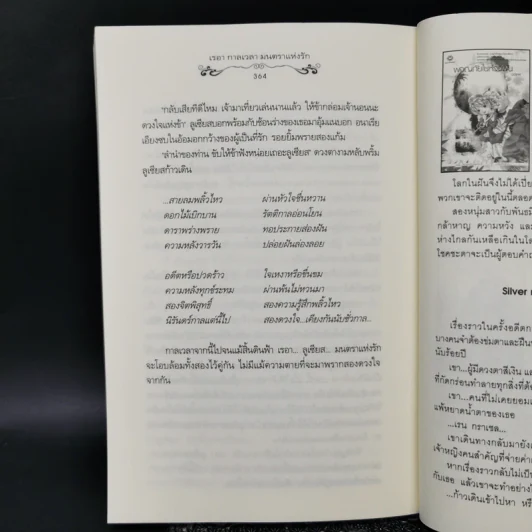 เรอา กาลเวลา มนตราแห่งรัก
364
"กลับเสียทีดีไหม เจ้ามาเที่ยวเล่นนานแล้ว ให้ข้ากล่อมเจ้านอนนะ
ดวงใจแห่งข้า" ลูเซียสบอกพร้อมกับช้อนร่างของเธอมาอุ้มแนบอก อนาเรีย
เอียงซบในอ้อมอกกว้างของผู้เป็นที่รัก รอยยิ้มพรายสองแก้ม
"ลำนำของท่าน ขับให้ข้าฟังหน่อยเถอะลูเซียส" ดวงตางามหลับพริ้ม
ลูเซียสก้าวเดิน
...สายลมพลิ้วไหว ผ่านหัวใจชื่นหวาน
ดอกไม้เบิกบาน รัตติกาลอ่อนโยน
ดาราพร่างพราย ทอประกายส่องฝัน
ความหลังวารวัน ปล่อยฝันล่องลอย
อดีตหรือปวดร้าว ใจเหงาหรือชื่นชม
ความหลังทุกข์ระทม ผ่านพ้นไม่หวนมา
สองจิตพิสุทธิ์ สองความรู้สึกพลิ้วไหว
นิรันดร์กาลแต่นี้ไป สองดวงใจ...เคียงกันนับชั่วกาล...
กาลเวลาจากนี้ไปจนแม้สิ้นดินฟ้า เรอา... ลูเซียส... มนตราแห่งรัก
จะโอบล้อมทั้งสองไว้คู่กัน ไม่มีแม้ความตายที่จะมาพรากสองดวงใจ
จากกัน
โลกในฝันจึงไม่ได้เปี่
พวกเขาจะติดอยู่ในนี้ตลอด
สองหนุ่มสาวกับพันธมิ
กล้าหาญ ความหวัง และ
ห่างไกลกันเหลือเกินในโ
โชคชะตาจะเป็นผู้ตอบคำถ
Silver
เรื่องราวในครั้งอดีตก
บางคนจำต้องข่มตาและฝืน
นับร้อยปี
เขา...ผู้มีดวงตาสีเงิน แ
ที่กัดกร่อนทำลายทุกสิ่งที่ต้อ
เขา...คนที่ไม่เคยยอม
แพ้หยาดน้ำตาของเธอ
...เรน กราเซล...
เขาเดินทางกลับมายัง
เจ้าหญิงคนสำคัญที่จ่ายค่า
หากเรื่องราวกลับไม่เป็
กับเธอ แล้วเขาจะทำอย่าง
...ก้าวเดินเข้าไปหา หรื